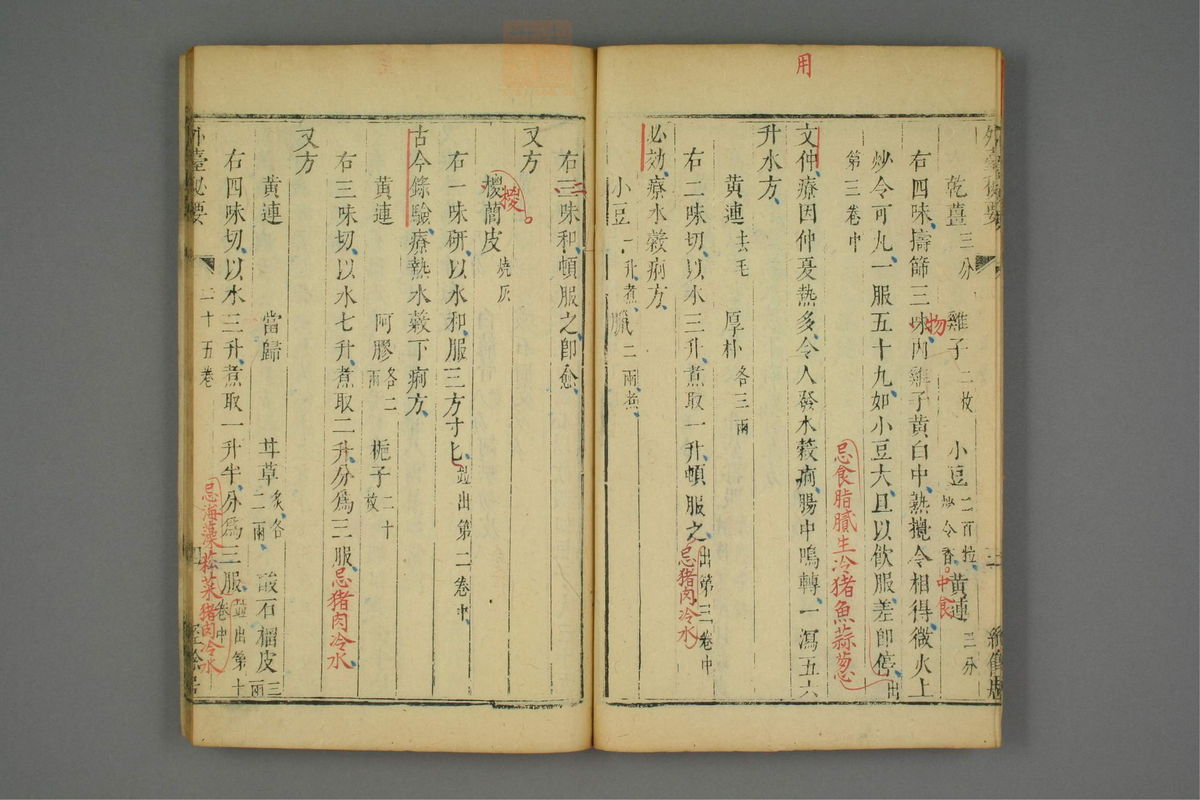 用
乾薑三分 雞子二枚 小豆二百粒炒令香 黃連三分
中食
右四味擣篩三味內雞子黃白中熟攪令相得微火上
物
炒令可丸一服五十丸如小豆大且以飲服差即停出
第三卷中
忌食脂膩生冷猪魚蒜葱
文仲療因仲夏熱多令人發水穀痢腸中鳴轉一瀉五六
升水方
黃連去毛 厚朴各三兩
右二味切以水三升煮取一升頓服之出第三卷中
忌猪肉冷水
必効療水穀痢方
小豆一升煮 臘二兩煮
右三味和頓服之即愈
二
又方
㯶䕠皮燒灰
椶
右一味研以水和服三方寸匕並出第二卷中
古今錄驗療熱水穀下痢方
黃連 阿膠各二兩 梔子二十枚
右三味切以水七升煮取二升分爲三服
忌猪肉冷水
又方
黃連 當歸 甘草炙各二兩 酸石榴皮三兩
右四味切以水三升煮取一升半分爲三服並出第十卷中
忌海藻菘菜猪肉冷水
外臺秘要 二十五卷 四